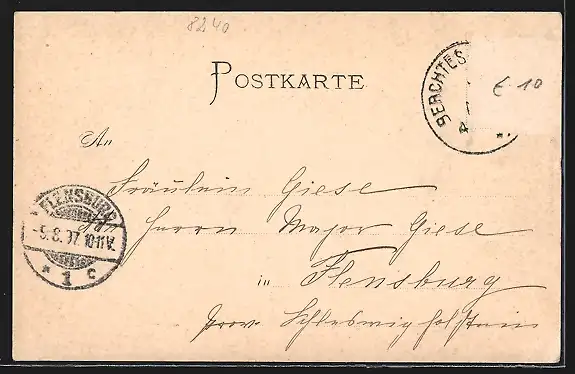 8240
POSTKARTE
BERCHTES
€ 10
An
Fräulein Giese
Herrn Major Giese
FLENSBURG
-5.8.97. 10-11V.
* 1 c
in Flensburg
prov. Schleswig Holstein